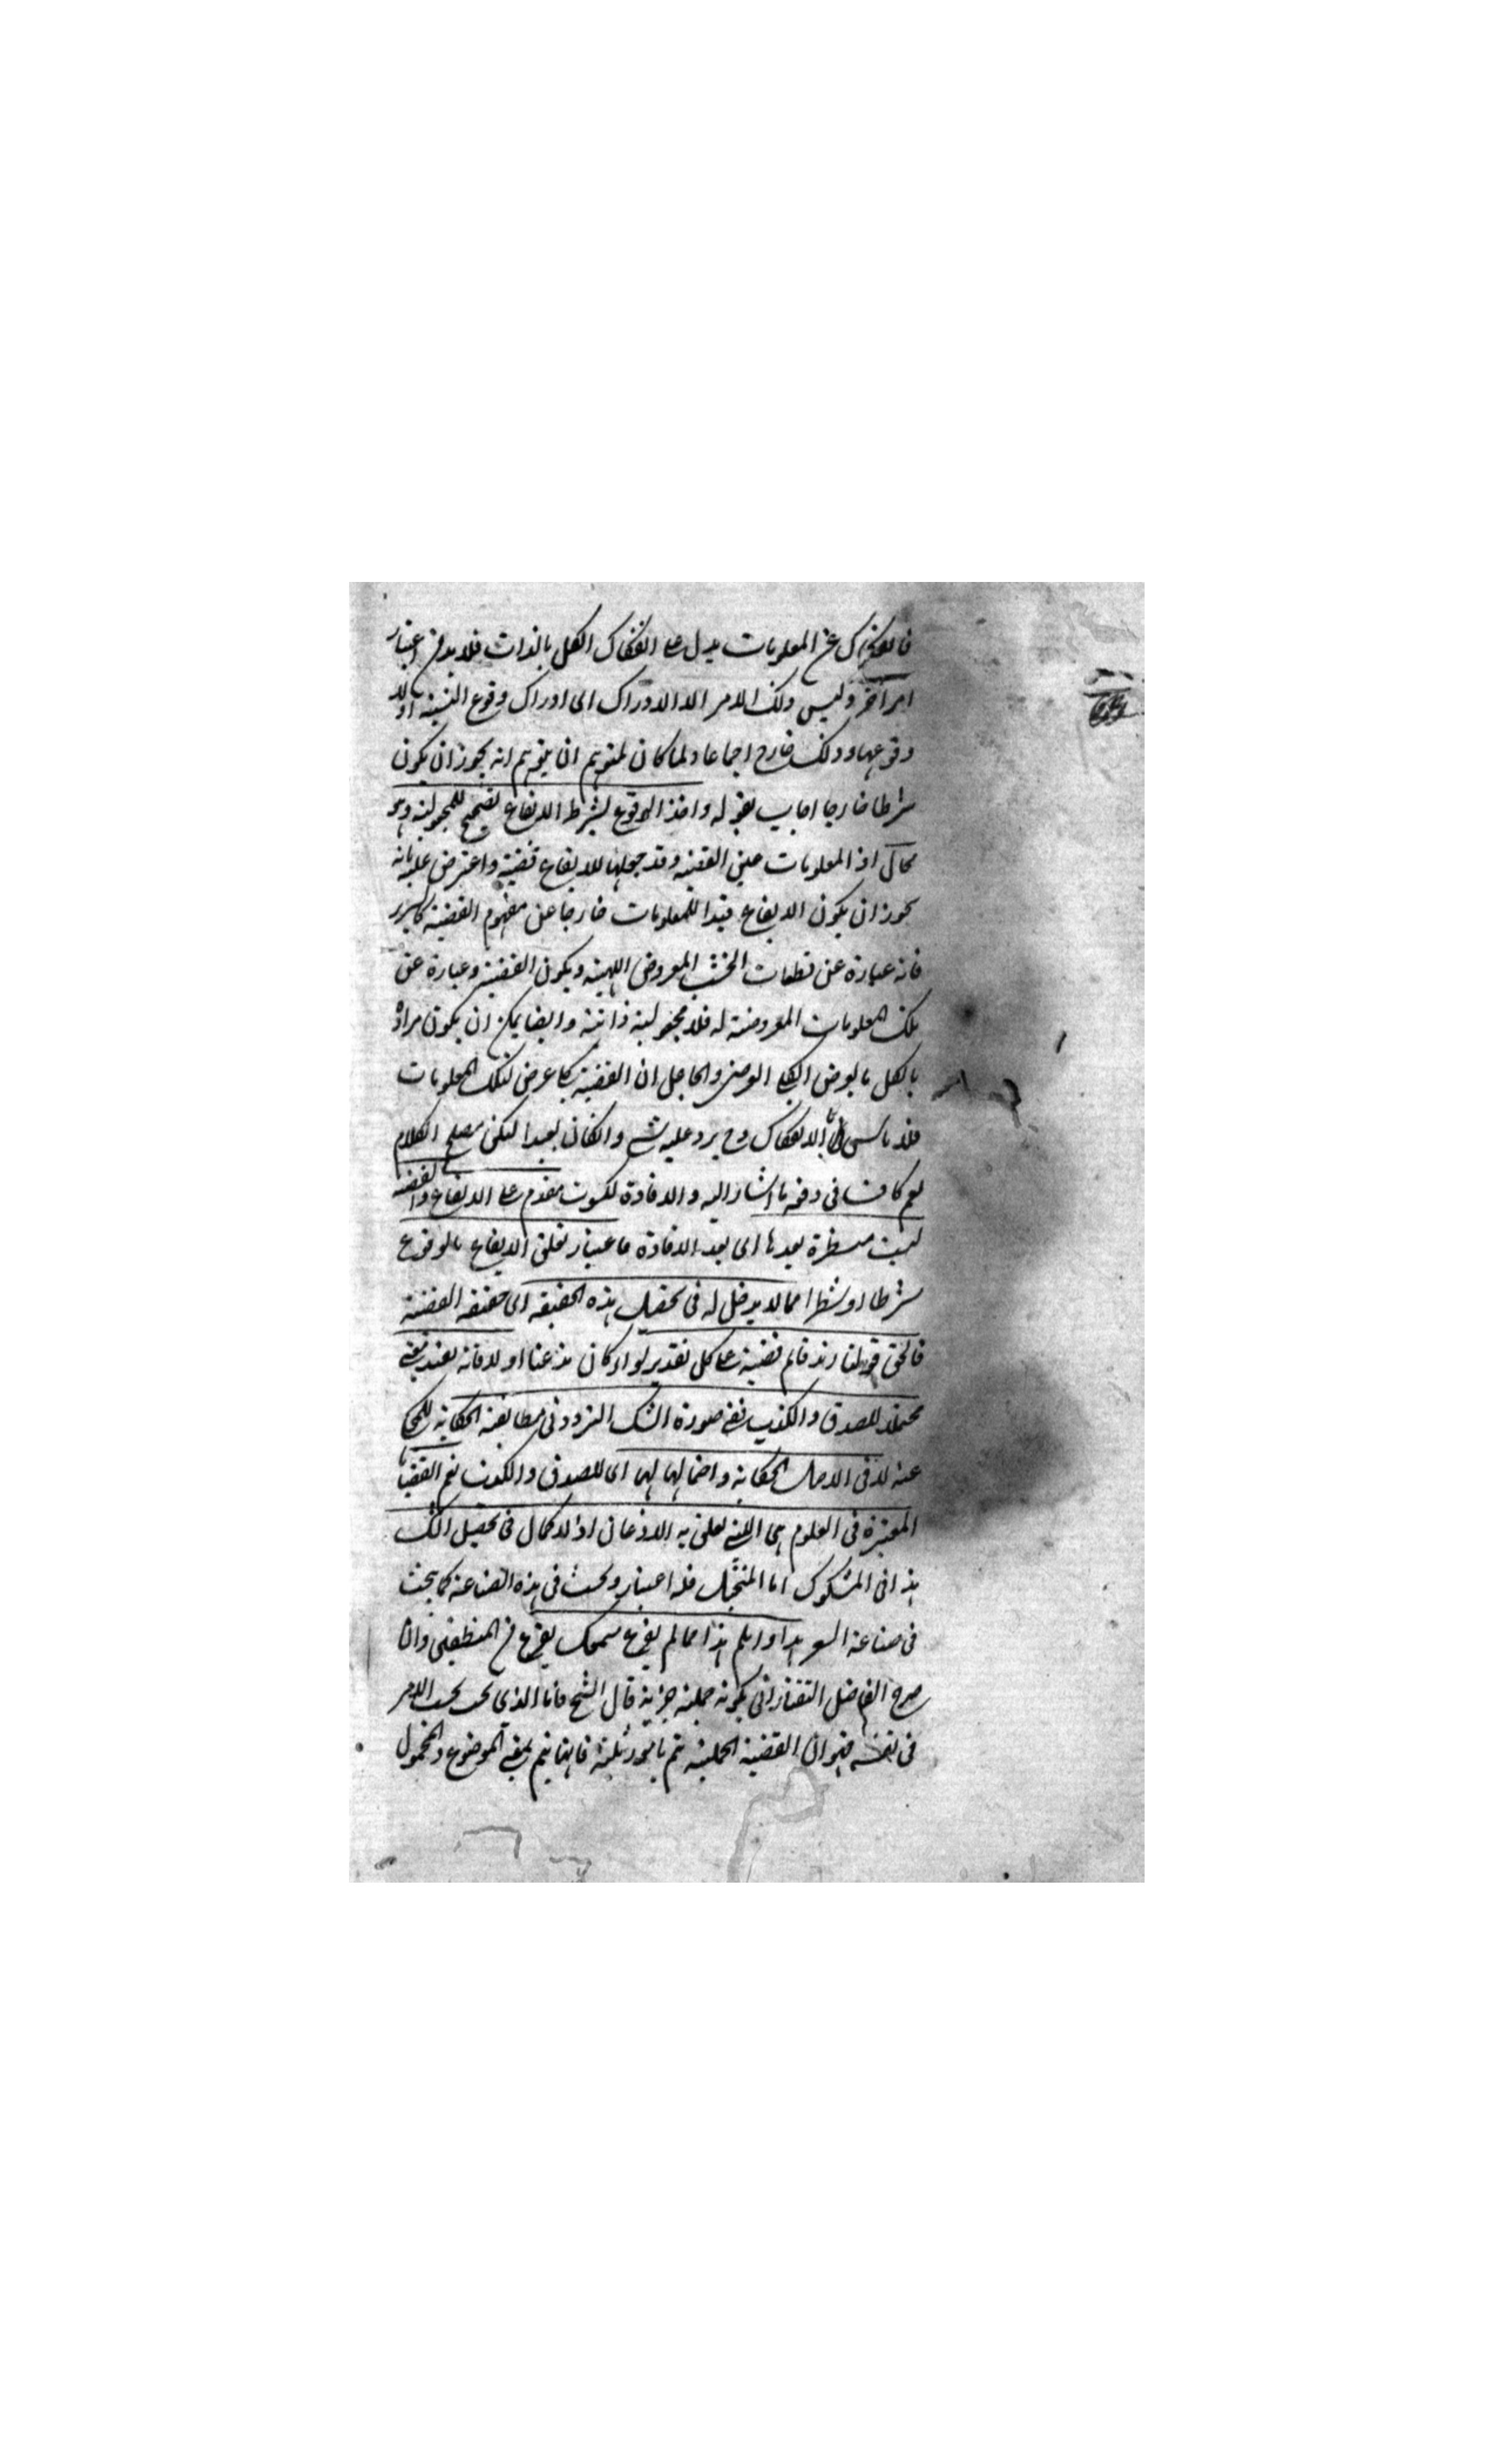 فانفكاك عن المعلومات يدل على انفكاك الكل بالذات فلا بد من اعتبار
امر آخر وليس ذلك الامر الا الادراك اى ادراك وقوع النسبة اولا
وقوعها وذلك خارج اجماعا ولما كان لمتوهم ان يتوهم انه يجوز ان يكون
شرطا خارجا اجاب بقوله واخذ الوقوع بشرط الايقاع تصحيح للمجعولية وهو
محال اذ المعلومات عين القضية وقد جعلها للايقاع قضية واعترض عليه بانه
يجوز ان يكون الايقاع قيدا للمعلومات خارجا عن مفهوم القضية كالسرير
فانه عبارة عن قطعات الخشب المعروض الهيئة ويكون القضية عبارة عن
تلك المعلومات المعروضة له فلا مجعولية ذاتية وايضا يمكن ان يكون مراده
بالكل بالعرض الكلى العرضى والحاصل ان القضية كلى عرض لتلك المعلومات
فلا باس الانفكاك وح يرد عليه شى وان كان بعيدا لكن مصلح الكلام
نعم كافيا فى دفع ما اشار اليه والافادة لكونه مقدم على الايقاع والقضية
ليست منتظرة بعدها اى بعد الافادة فاعتبار تعلق الايقاع بالوقوع
شرطا او شطرا مما لا يدخل له فى تحصيل هذه الحقيقة اى حقيقة القضية
فالحق قولنا زيد قائم قضية على كل تقدير سواء كان مذعنا او لا فانه يفيد معنى
محتملا للصدق والكذب ففى صورة الشك التردد فى مطابقة الحكاية للمحكى
عنه لا فى اصل الحكاية واحتمالها لهما اى للصدق والكذب نعم القضايا
المعتبرة فى العلوم هى التى تعلق به الاذعان اذ لا كمال فى تحصيل الشك
هذا فى المشكوك اما المتخيل فله اعتبار وبحث فى هذه الصناعة كما يبحث
فى صناعة الشعر هذا واعلم هذا مما لم يقرع سمعك يقرع من المنطقيين وان
صرح الفاضل التفتازانى بكونه جملة خبرية قال الشيخ فاما الذى يجب بحسب الامر
فى نفسه فهو ان القضية الحملية تتم بامور ثلثة فانها تتم بمعنى الموضوع والمحمول